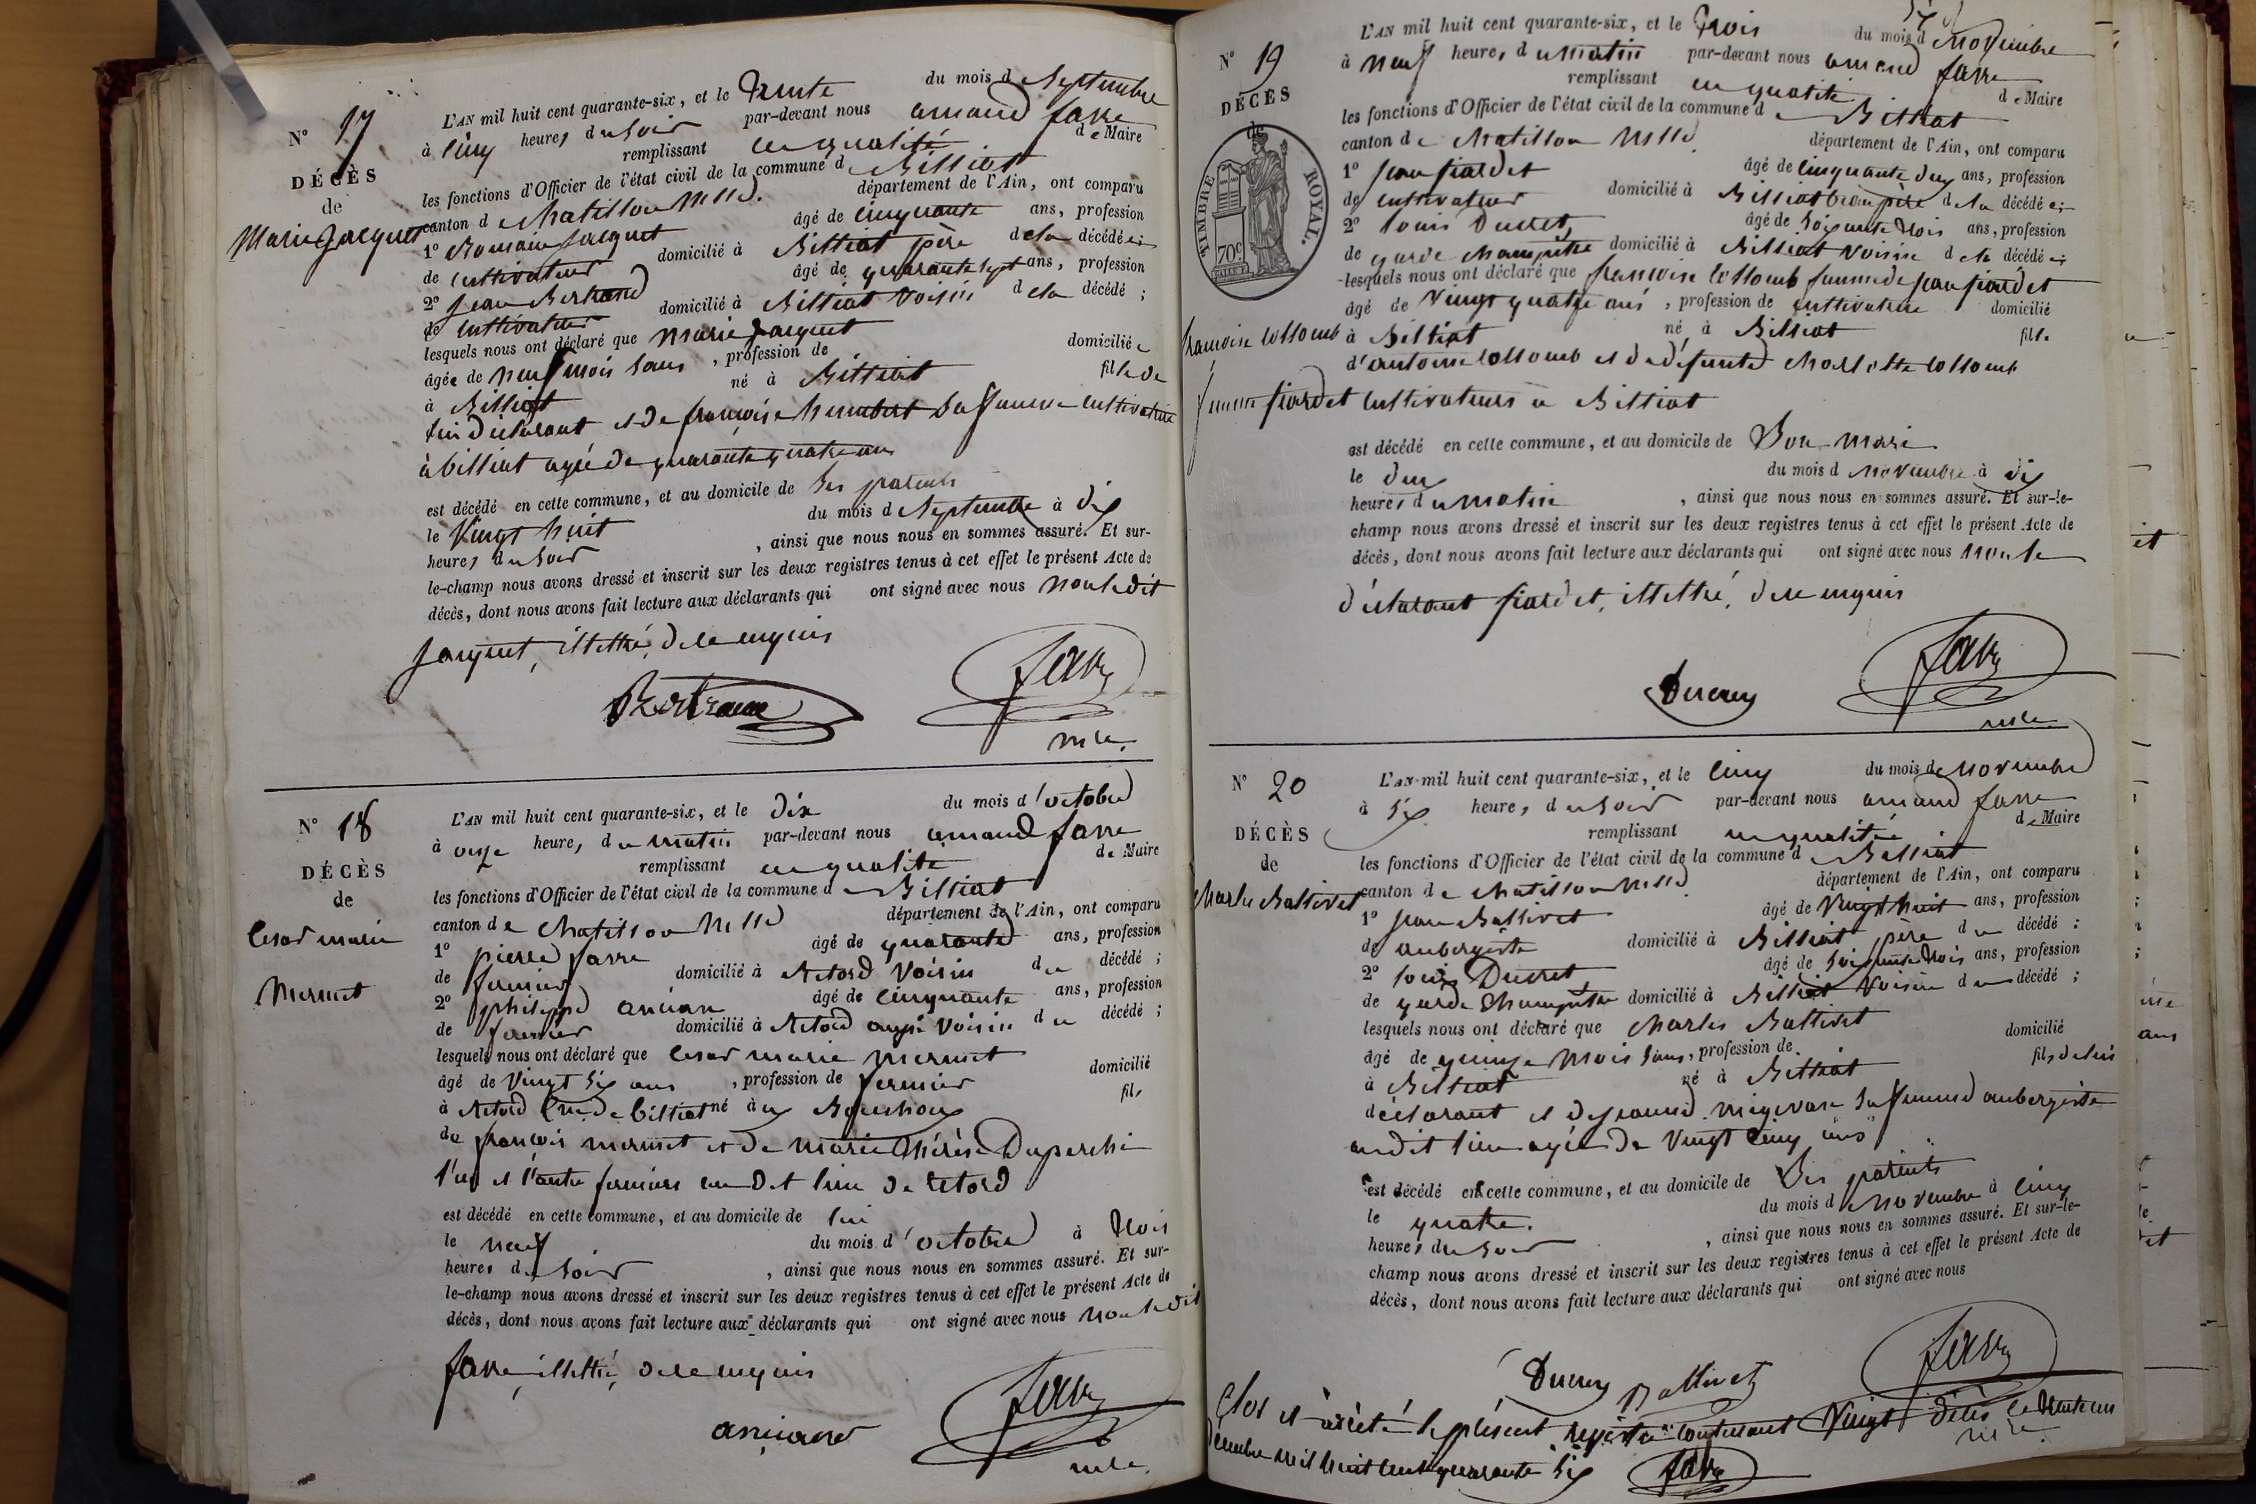 N° 17
DÉCÈS
de
Marie Jacquet
L'AN mil huit cent quarante-six, et le trente du mois de Septembre
à cinq heures du soir par-devant nous amand favre
remplissant en qualité de Maire
les fonctions d'Officier de l'état civil de la commune de Billiat
canton de Chatillon
département de l'Ain, ont comparu
1° Romain Jacquet âgé de cinquante ans, profession
de cultivateur domicilié à Billiat père de la décédée;
2° Jean Bertrand âgé de quarante sept ans, profession
de cultivateur domicilié à Billiat voisin de la décédé ;
lesquels nous ont déclaré que marie Jacquet
âgée de neuf mois sans , profession de domiciliée
à Billiat né à Billiat fille de
lui déclarant et de françoise humbert sa femme cultivatrice
à billiat agée de quarante quatre ans
est décédé en cette commune, et au domicile de ses parents
le vingt huit du mois de Septembre à dix
heures du soir , ainsi que nous nous en sommes assuré. Et sur-
le-champ nous avons dressé et inscrit sur les deux registres tenus à cet effet le présent Acte de
décès, dont nous avons fait lecture aux déclarants qui ont signé avec nous non ledit
Jacquet, illettré, de ce enquis
Bertrand
favre
N° 18
DÉCÈS
de
Cesar marie
Mermet
L'AN mil huit cent quarante-six, et le dix du mois d'octobre
à onze heures du matin par-devant nous amand favre
remplissant en qualité de Maire
les fonctions d'Officier de l'état civil de la commune de Billiat
canton de Chatillon
département de l'Ain, ont comparu
1° pierre favre âgé de quarante ans, profession
de fermier domicilié à Retord voisin du décédé ;
2° philippe ancian âgé de cinquante ans, profession
de fermier domicilié à Retord aussi voisin du décédé ;
lesquels nous ont déclaré que Cesar marie mermet
âgé de vingt six ans , profession de fermier domicilié
à Retord Cne de billiat né à fils
de françois mermet et de marie thérèse
l'un et l'autre fermiers au dit lieu de retord
est décédé en cette commune, et au domicile de lui
le neuf du mois d'octobre à trois
heures du soir , ainsi que nous nous en sommes assuré. Et sur-
le-champ nous avons dressé et inscrit sur les deux registres tenus à cet effet le présent Acte de
décès, dont nous avons fait lecture aux déclarants qui ont signé avec nous non ledit
favre, illettré, de ce enquis
favre
N° 19
DÉCÈS
de
TIMBRE ROYAL.
70c
françoise Collomb
femme fiardet
L'AN mil huit cent quarante-six, et le trois du mois de Novembre
à neuf heures du matin par-devant nous amand favre
remplissant en qualité de Maire
les fonctions d'Officier de l'état civil de la commune de Billiat
canton de Chatillon
département de l'Ain, ont comparu
1° Jean fiardet âgé de cinquante deux ans, profession
de cultivateur domicilié à Billiat beau père de la décédée;
2° louis Ducret, âgé de soixante trois ans, profession
de garde champêtre domicilié à Billiat voisin de la décédée;
lesquels nous ont déclaré que francoise Collomb femme de Jean fiardet
âgé de vingt quatre ans , profession de cultivatrice domicilié
à Billiat né à Billiat fille
d'antoine Collomb et de défunte Charlotte Collomb
cultivateurs a Billiat
est décédé en cette commune, et au domicile de Son mari
le deux du mois de novembre à dix
heures du matin , ainsi que nous nous en sommes assuré. Et sur-le-
champ nous avons dressé et inscrit sur les deux registres tenus à cet effet le présent Acte de
décès, dont nous avons fait lecture aux déclarants qui ont signé avec nous non le
déclarant fiardet, illettré, de ce enquis
Ducret
favre
N° 20
DÉCÈS
de
Charles Ballivet
L'AN mil huit cent quarante-six, et le cinq du mois de novembre
à six heures du soir par-devant nous amand favre
remplissant en qualité de Maire
les fonctions d'Officier de l'état civil de la commune de Billiat
canton de Chatillon
département de l'Ain, ont comparu
1° Jean Ballivet âgé de vingt huit ans, profession
de aubergiste domicilié à Billiat père du décédé ;
2° louis Ducret, âgé de soixante trois ans, profession
de garde Champêtre domicilié à Billiat voisin du décédé ;
lesquels nous ont déclaré que Charles Ballivet
âgé de quinze mois sans , profession de domicilié
à Billiat né à Billiat fils de lui
déclarant et de sa femme aubergiste
au dit lieu agée de vingt cinq ans
est décédé en cette commune, et au domicile de Ses parents
le quatre. du mois de novembre à cinq
heures du soir , ainsi que nous nous en sommes assuré. Et sur-le-
champ nous avons dressé et inscrit sur les deux registres tenus à cet effet le présent Acte de
décès, dont nous avons fait lecture aux déclarants qui ont signé avec nous
Ducret Ballivet
favre
Clos et arrêté le présent registre contenant vingt décès le trente un
décembre mil huit cent quarante six favre